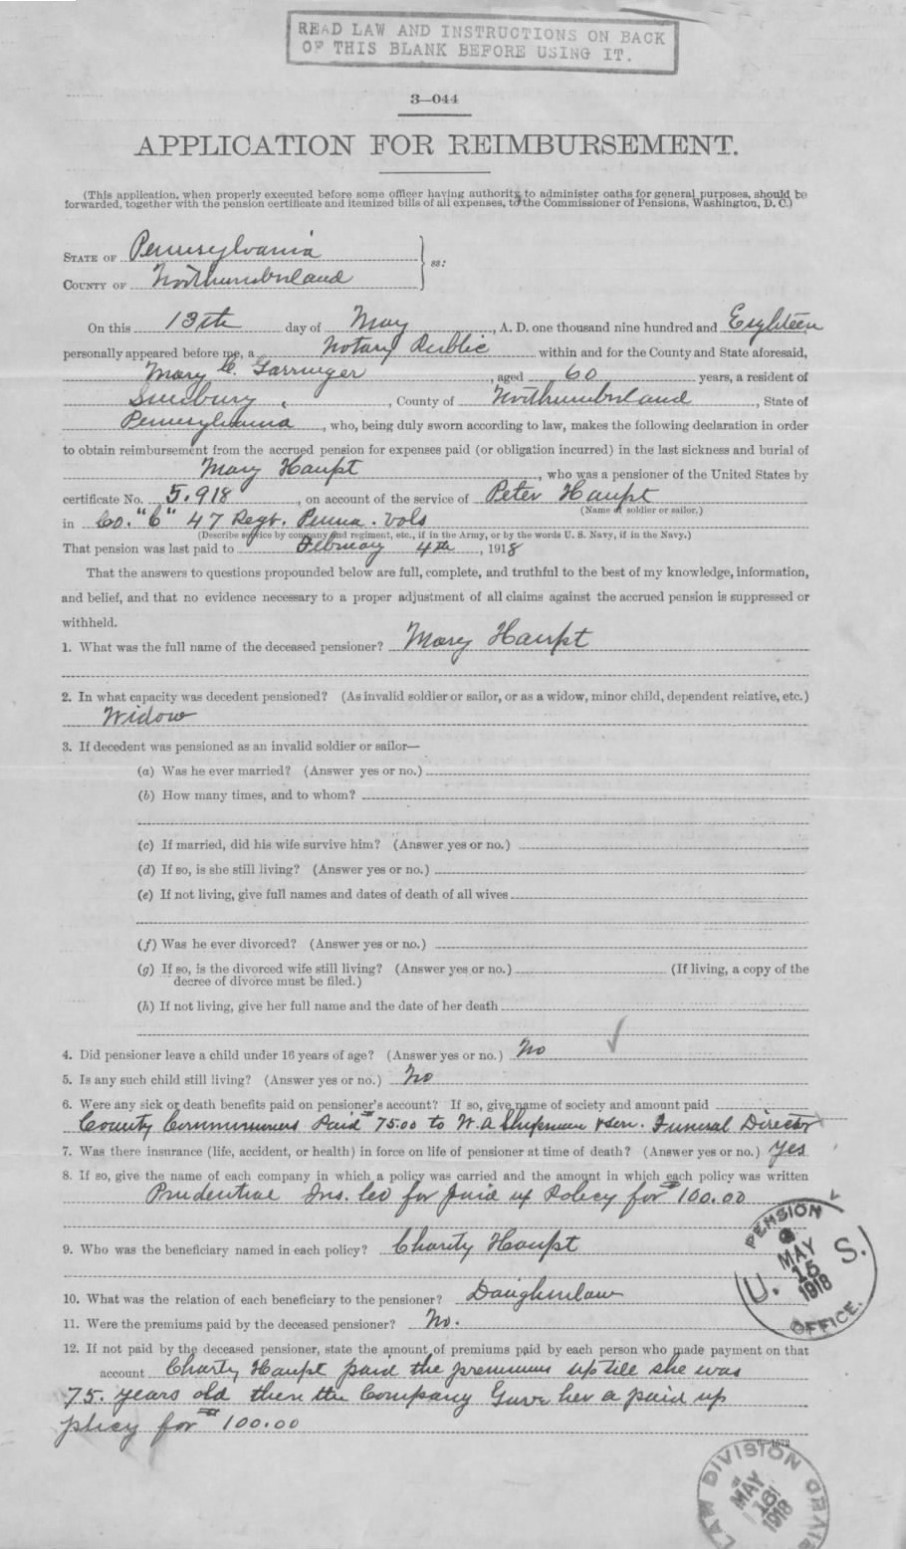 READ LAW AND INSTRUCTIONS ON BACK
OF THIS BLANK BEFORE USING IT.
3—044
APPLICATION FOR REIMBURSEMENT.
(This application, when properly executed before some officer having authority to administer oaths for general purposes, should be
forwarded, together with the pension certificate and itemized bills of all expenses, to the Commissioner of Pensions, Washington, D. C.)
STATE OF Pennsylvania
COUNTY OF Northumberland
ss:
On this 13th day of May, A. D. one thousand nine hundred and Eighteen
personally appeared before me, a Notary Public within and for the County and State aforesaid,
Mary C. Garringer, aged 60 years, a resident of
Sunbury, County of Northumberland, State of
Pennsylvania, who, being duly sworn according to law, makes the following declaration in order
to obtain reimbursement from the accrued pension for expenses paid (or obligation incurred) in the last sickness and burial of
Mary Haupt, who was a pensioner of the United States by
certificate No. 5.918, on account of the service of Peter Haupt
(Name of soldier or sailor.)
in Co. "C" 47 Regt. Penna. Vols
(Describe service by company and regiment, etc., if in the Army, or by the words U. S. Navy, if in the Navy.)
That pension was last paid to February 4th, 1918
That the answers to questions propounded below are full, complete, and truthful to the best of my knowledge, information,
and belief, and that no evidence necessary to a proper adjustment of all claims against the accrued pension is suppressed or
withheld.
1. What was the full name of the deceased pensioner? Mary Haupt
2. In what capacity was decedent pensioned? (As invalid soldier or sailor, or as a widow, minor child, dependent relative, etc.)
Widow
3. If decedent was pensioned as an invalid soldier or sailor—
(a) Was he ever married? (Answer yes or no.)
(b) How many times, and to whom?
(c) If married, did his wife survive him? (Answer yes or no.)
(d) If so, is she still living? (Answer yes or no.)
(e) If not living, give full names and dates of death of all wives
(f) Was he ever divorced? (Answer yes or no.)
(g) If so, is the divorced wife still living? (Answer yes or no.) (If living, a copy of the
decree of divorce must be filed.)
(h) If not living, give her full name and the date of her death
4. Did pensioner leave a child under 16 years of age? (Answer yes or no.) No
5. Is any such child still living? (Answer yes or no.) No
6. Were any sick or death benefits paid on pensioner's account? If so, give name of society and amount paid
County Commissioners Paid $75.00 to W. A Shipman & Son. Funeral Director
7. Was there insurance (life, accident, or health) in force on life of pensioner at time of death? (Answer yes or no.) Yes
8. If so, give the name of each company in which a policy was carried and the amount in which each policy was written
Prudential Ins. Co for paid up Policy for $100.00
9. Who was the beneficiary named in each policy? Charity Haupt
10. What was the relation of each beneficiary to the pensioner? Daughinlaw
11. Were the premiums paid by the deceased pensioner? No.
12. If not paid by the deceased pensioner, state the amount of premiums paid by each person who made payment on that
account Charty Haupt paid the premiums up till she was
75. years old then the Company Gave her a paid up
plicy for $100.00
PENSION
MAY
15
1918
U. S.
OFFICE.
LAW DIVISION
MAY
18
1918